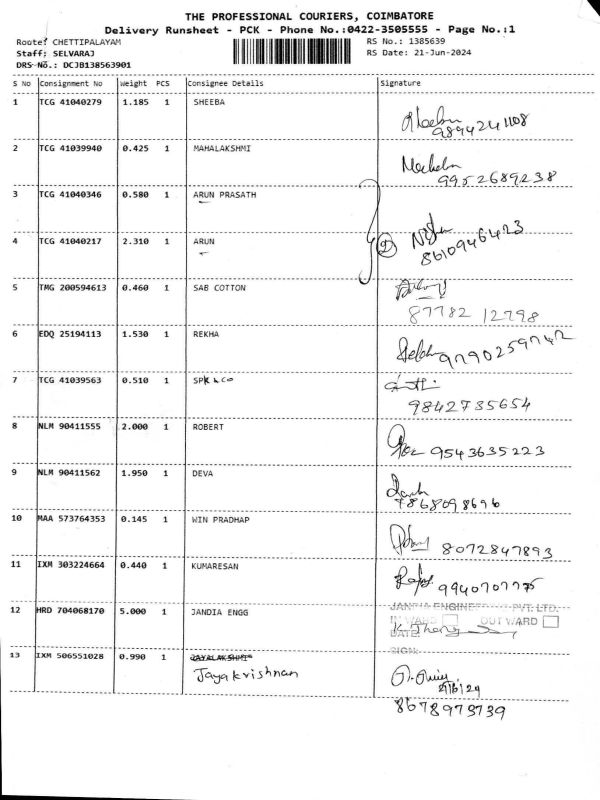 THE PROFESSIONAL COURIERS, COIMBATORE
Delivery Runsheet - PCK - Phone No.:0422-3505555 - Page No.:1
Route: CHETTIPALAYAM
RS No.: 1385639
Staff: SELVARAJ
RS Date: 21-Jun-2024
DRS No.: DCJB138563901
S No Consignment No Weight PCS Consignee Details Signature
1 TCG 41040279 1.185 1 SHEEBA
9894241108
2 TCG 41039940 0.425 1 MAHALAKSHMI
9952689238
3 TCG 41040346 0.580 1 ARUN PRASATH
8610946423
4 TCG 41040217 2.310 1 ARUN
5 TMG 200594613 0.460 1 SAB COTTON
87782 12798
6 EDQ 25194113 1.530 1 REKHA
9790259742
7 TCG 41039563 0.510 1 SPK & CO
9842735654
8 NLM 90411555 2.000 1 ROBERT
9543635223
9 NLM 90411562 1.950 1 DEVA
7868098696
10 MAA 573764353 0.145 1 WIN PRADHAP
8072847893
11 IXM 303224664 0.440 1 KUMARESAN
9940707775
12 HRD 704068170 5.000 1 JANDIA ENGG
PVT. LTD.
OUTWARD
DATE
SIGN:
13 IXM 506551028 0.990 1 JAYALAKSHMI
Jayakrishnan
8678973739